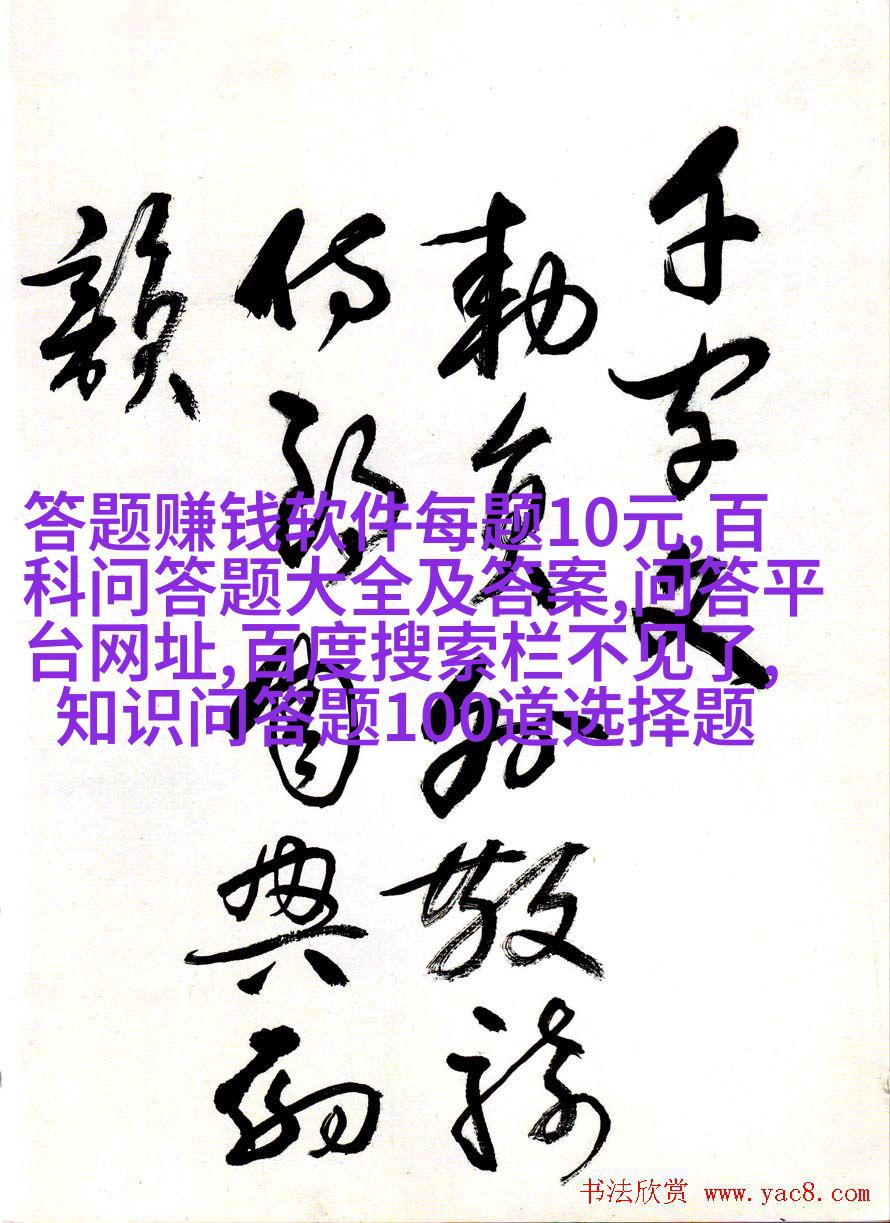 千字文
勅員外散騎
侍郎周興嗣
韻
答题赚钱软件每题10元,百
科问答题大全及答案,问答平
台网址,百度搜索栏不见了,
知识问答题100道选择题
书法欣赏 www.yac8.com